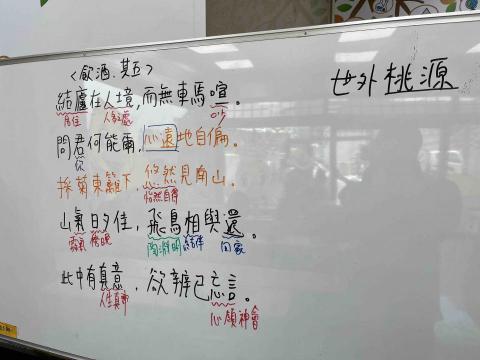 <飲酒.其五>
世外桃源
結廬在人境,而無車馬喧。
居住 吵
問君何能爾,心遠地自偏。
你
採菊東籬下,悠然見南山。
怡然自得
山氣日夕佳,飛鳥相與還。
霧氣 傍晚 陶淵明 結伴 回家
此中有真意,欲辨已忘言。
人生真諦 心領神會